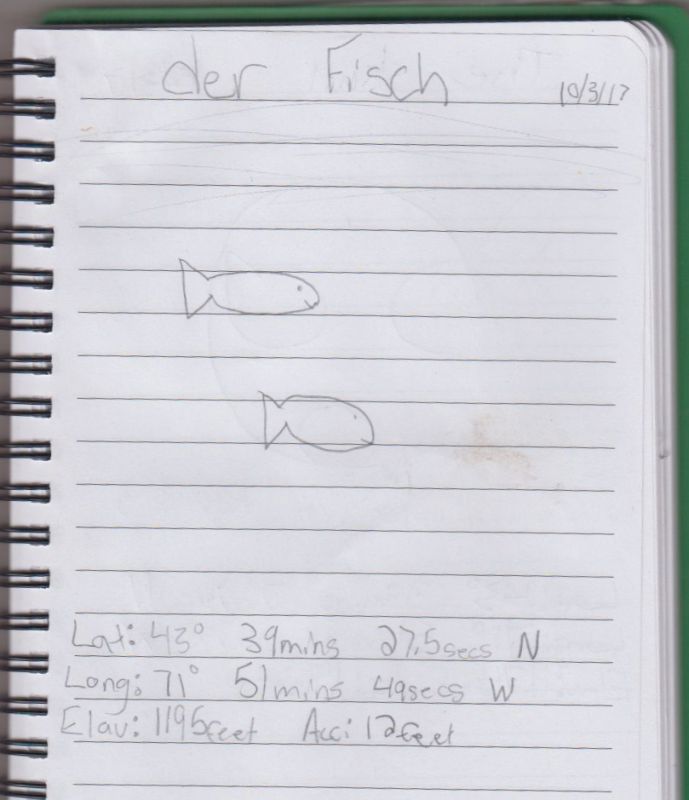 der Fisch
10/3/17
Lat: 43° 39mins 27.5secs N
Long: 71° 51mins 49secs W
Elav: 1195feet Acc: 12feet